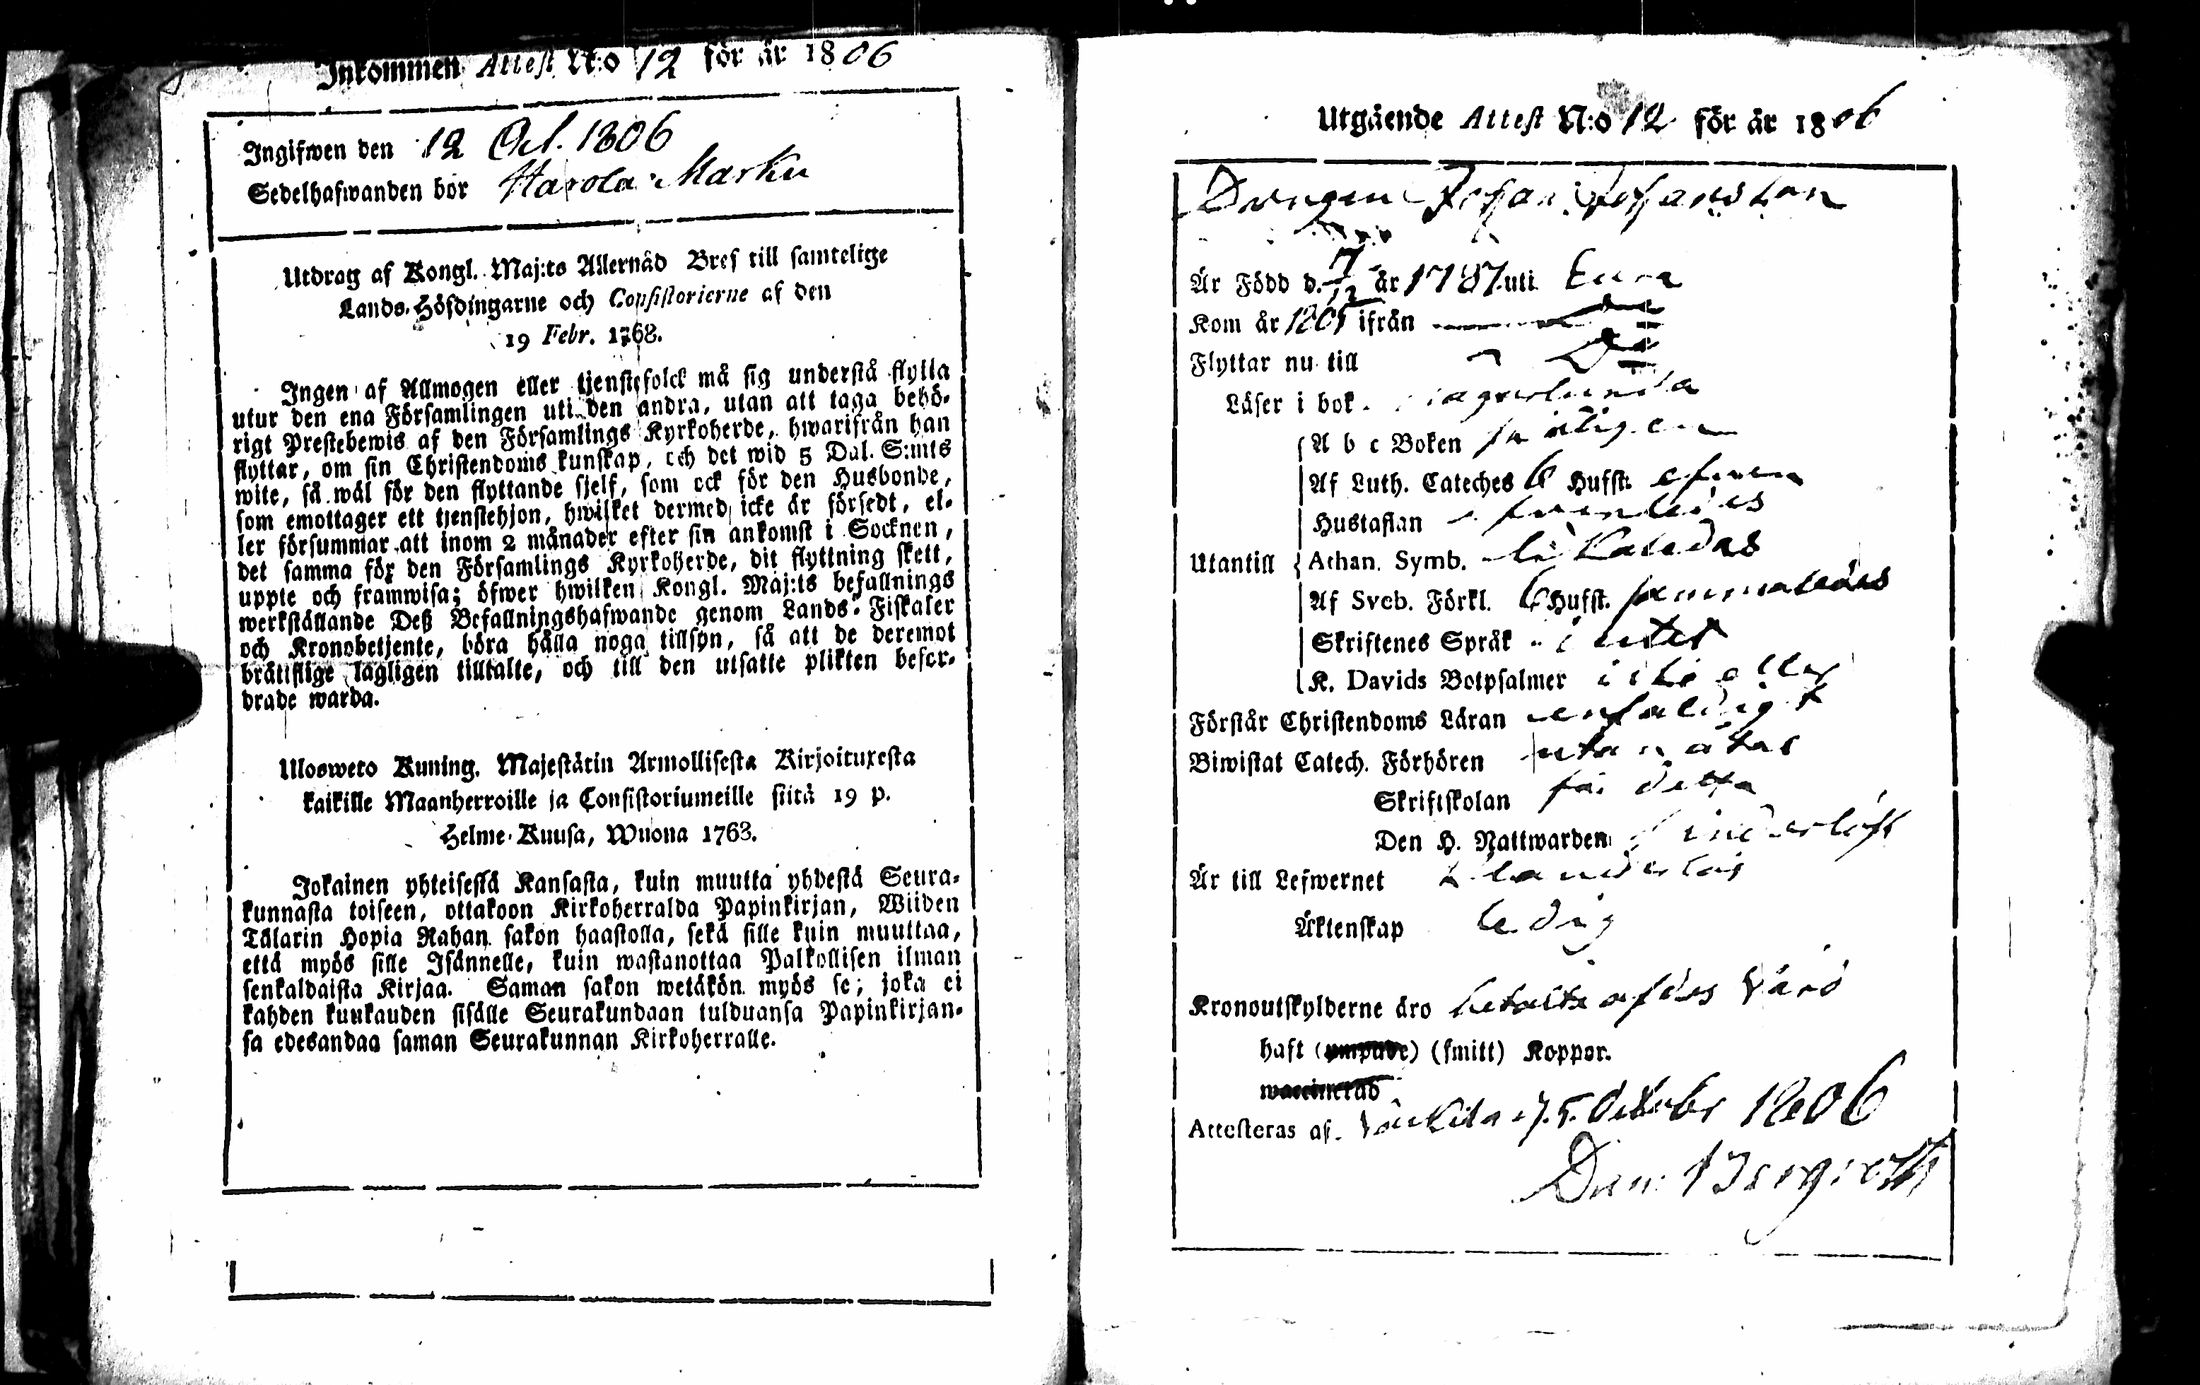 Inkommen Attest N:o 12 för år 1806
Ingifwen den 12 Oct. 1806
Sedelhafwanden bor Harola Marku
Utdrag af Kongl. Maj:ts Allernåd Bref till samtelige
Lands-Höfdingarne och Consistorierne af den
19 Febr. 1768.
Ingen af Allmogen eller tjenstefolck må sig understå flytta
utur den ena Församlingen uti den andra, utan att taga behö-
rigt Prestebewis af den Församlings Kyrkoherde, hwarifrån han
flyttar, om sin Christendoms kunskap, och det wid 5 Dal. S:mts
wite, så wäl för den flyttande sjelf, som ock för den Husbonde,
som emottager ett tjenstehjon, hwilket dermed icke är försedt, el-
ler försummar att inom 2 månader efter sin ankomst i Socknen,
det samma för den Församlings Kyrkoherde, dit flyttning skett,
uppte och framwisa; öfwer hwilken Kongl. Maj:ts befallnings
werkställande Deß Befallningshafwande genom Lands-Fiskaler
och Kronobetjente, böra hålla noga tillsyn, så att de deremot
brätislige lagligen tilltalte, och till den utsatte plikten befor-
drade warda.
Ulosweto Kuning. Majestätin Armollisesta Kirjoituxesta
kaikille Maanherroille ja Consistoriumeille siitä 19 p.
Helme-Kuusa, Wuona 1763.
Jokainen yhteisestä Kansasta, kuin muutta yhdestä Seura-
kunnasta toiseen, ottakoon Kirkoherralda Papinkirjan, Wiiden
Tälarin Hopia Rahan sakon haastolla, sekä sille kuin muuttaa,
että myös sille Isännelle, kuin wastanottaa Palkollisen ilman
senkaldaista Kirjaa. Saman sakon wetäkön myös se; joka ei
kahden kuukauden sisälle Seurakundaan tulduansa Papinkirjan-
sa edesandaa saman Seurakunnan Kirkoherralle.
Utgående Attest N:o 12 för år 1806
Drengen Johan Johansson
Är Född d. 7/12 år 1787 uti Eura
Kom år 1805 ifrån
Flyttar nu till Dito
Läser i bok
A b c Boken
Af Luth. Cateches 6 Hufst. efwen
Hustaflan
Utantill Athan. Symb. likaledes
Af Sveb. Förkl. 6 Hufst. sammaledes
Skriftenes Språk intet
K. Davids Botpsalmer icke eller
Förstår Christendoms Läran enfaldigt
Biwistat Catech. Förhören
Skriftskolan för detta
Den H. Nattwarden
Är till Lefwernet
Äktenskap ledig
Kronoutskylderne äro betalte af dess Värd
haft (ympade) (smitt) Koppor.
waccinerad
Attesteras af. d. 5. Octobr 1806
Dan: Bergroth